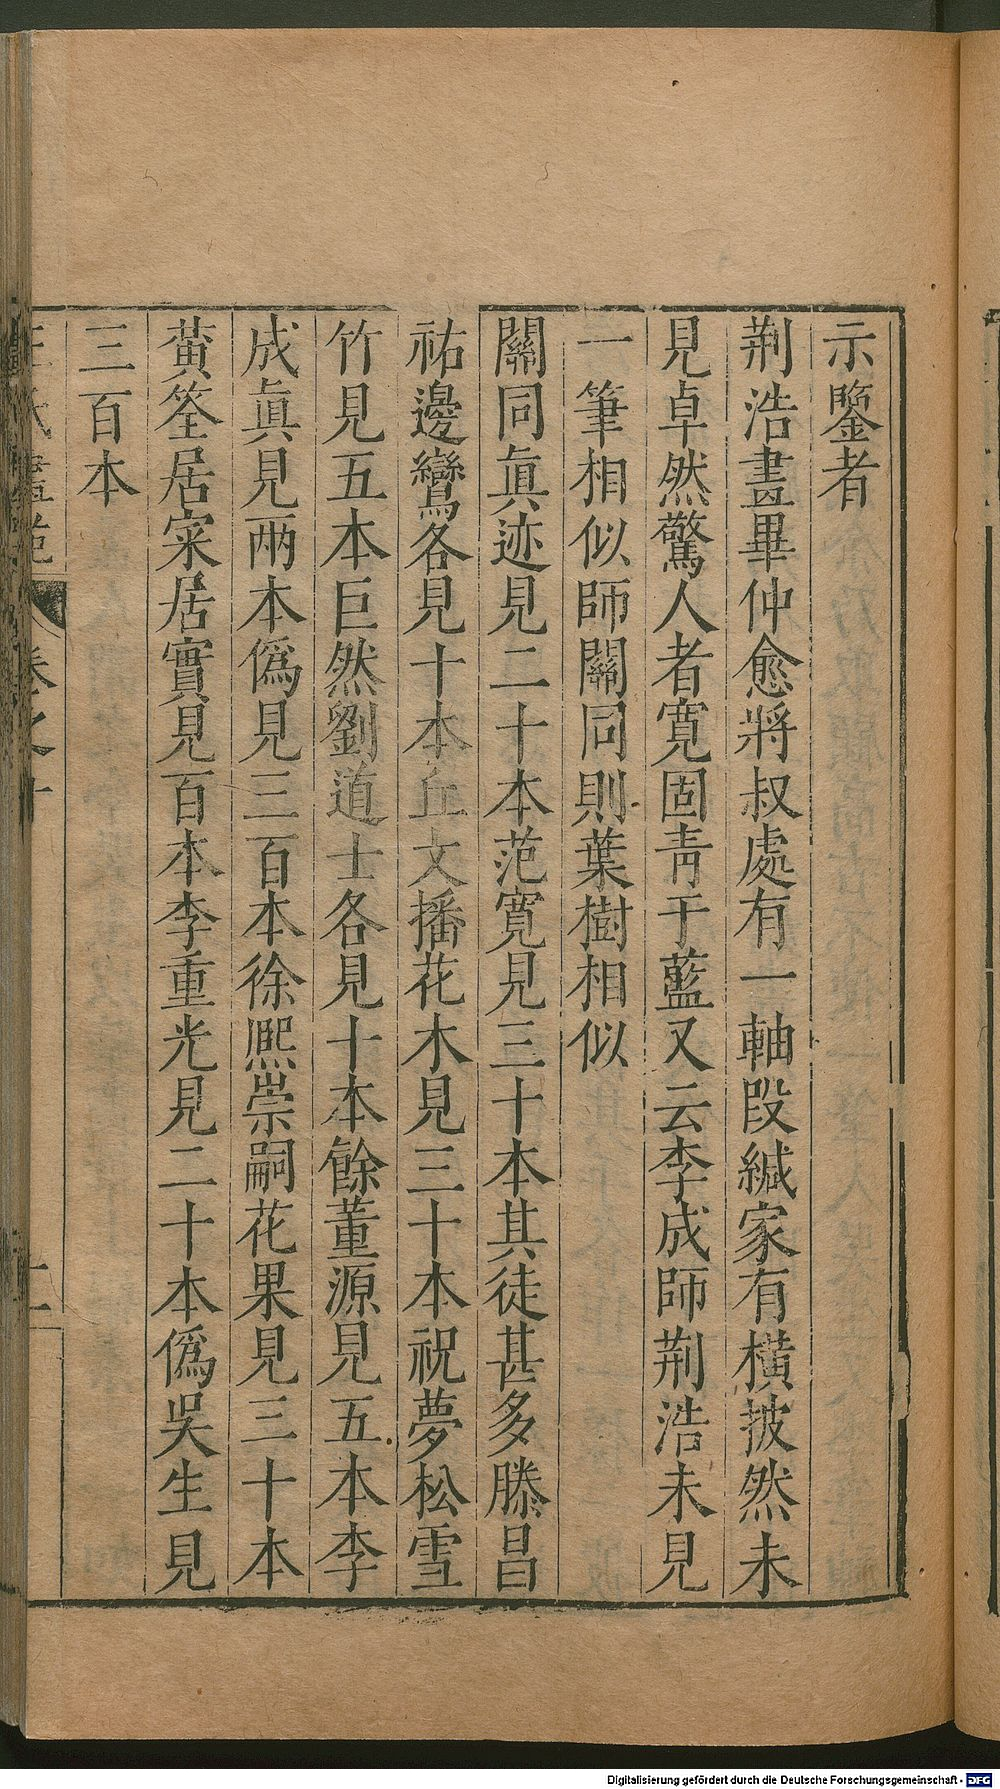 示鑒者
荆浩畫畢仲愈將叔處有一軸段緘家有橫披然未
見卓然驚人者寬固青于藍又云李成師荆浩未見
一筆相似師關同則葉樹相似
關同眞迹見二十本范寬見三十本其徒甚多滕昌
祐邊鸞各見十本丘文播花木見三十本祝夢松雪
竹見五本巨然劉道士各見十本餘董源見五本李
成眞見兩本僞見三百本徐熈崇嗣花果見三十本
黃筌居寀居實見百本李重光見二十本僞吳生見
三百本
王氏畫苑
卷之十
十一
Digitalisierung gefördert durch die Deutsche Forschungsgemeinschaft - DFG